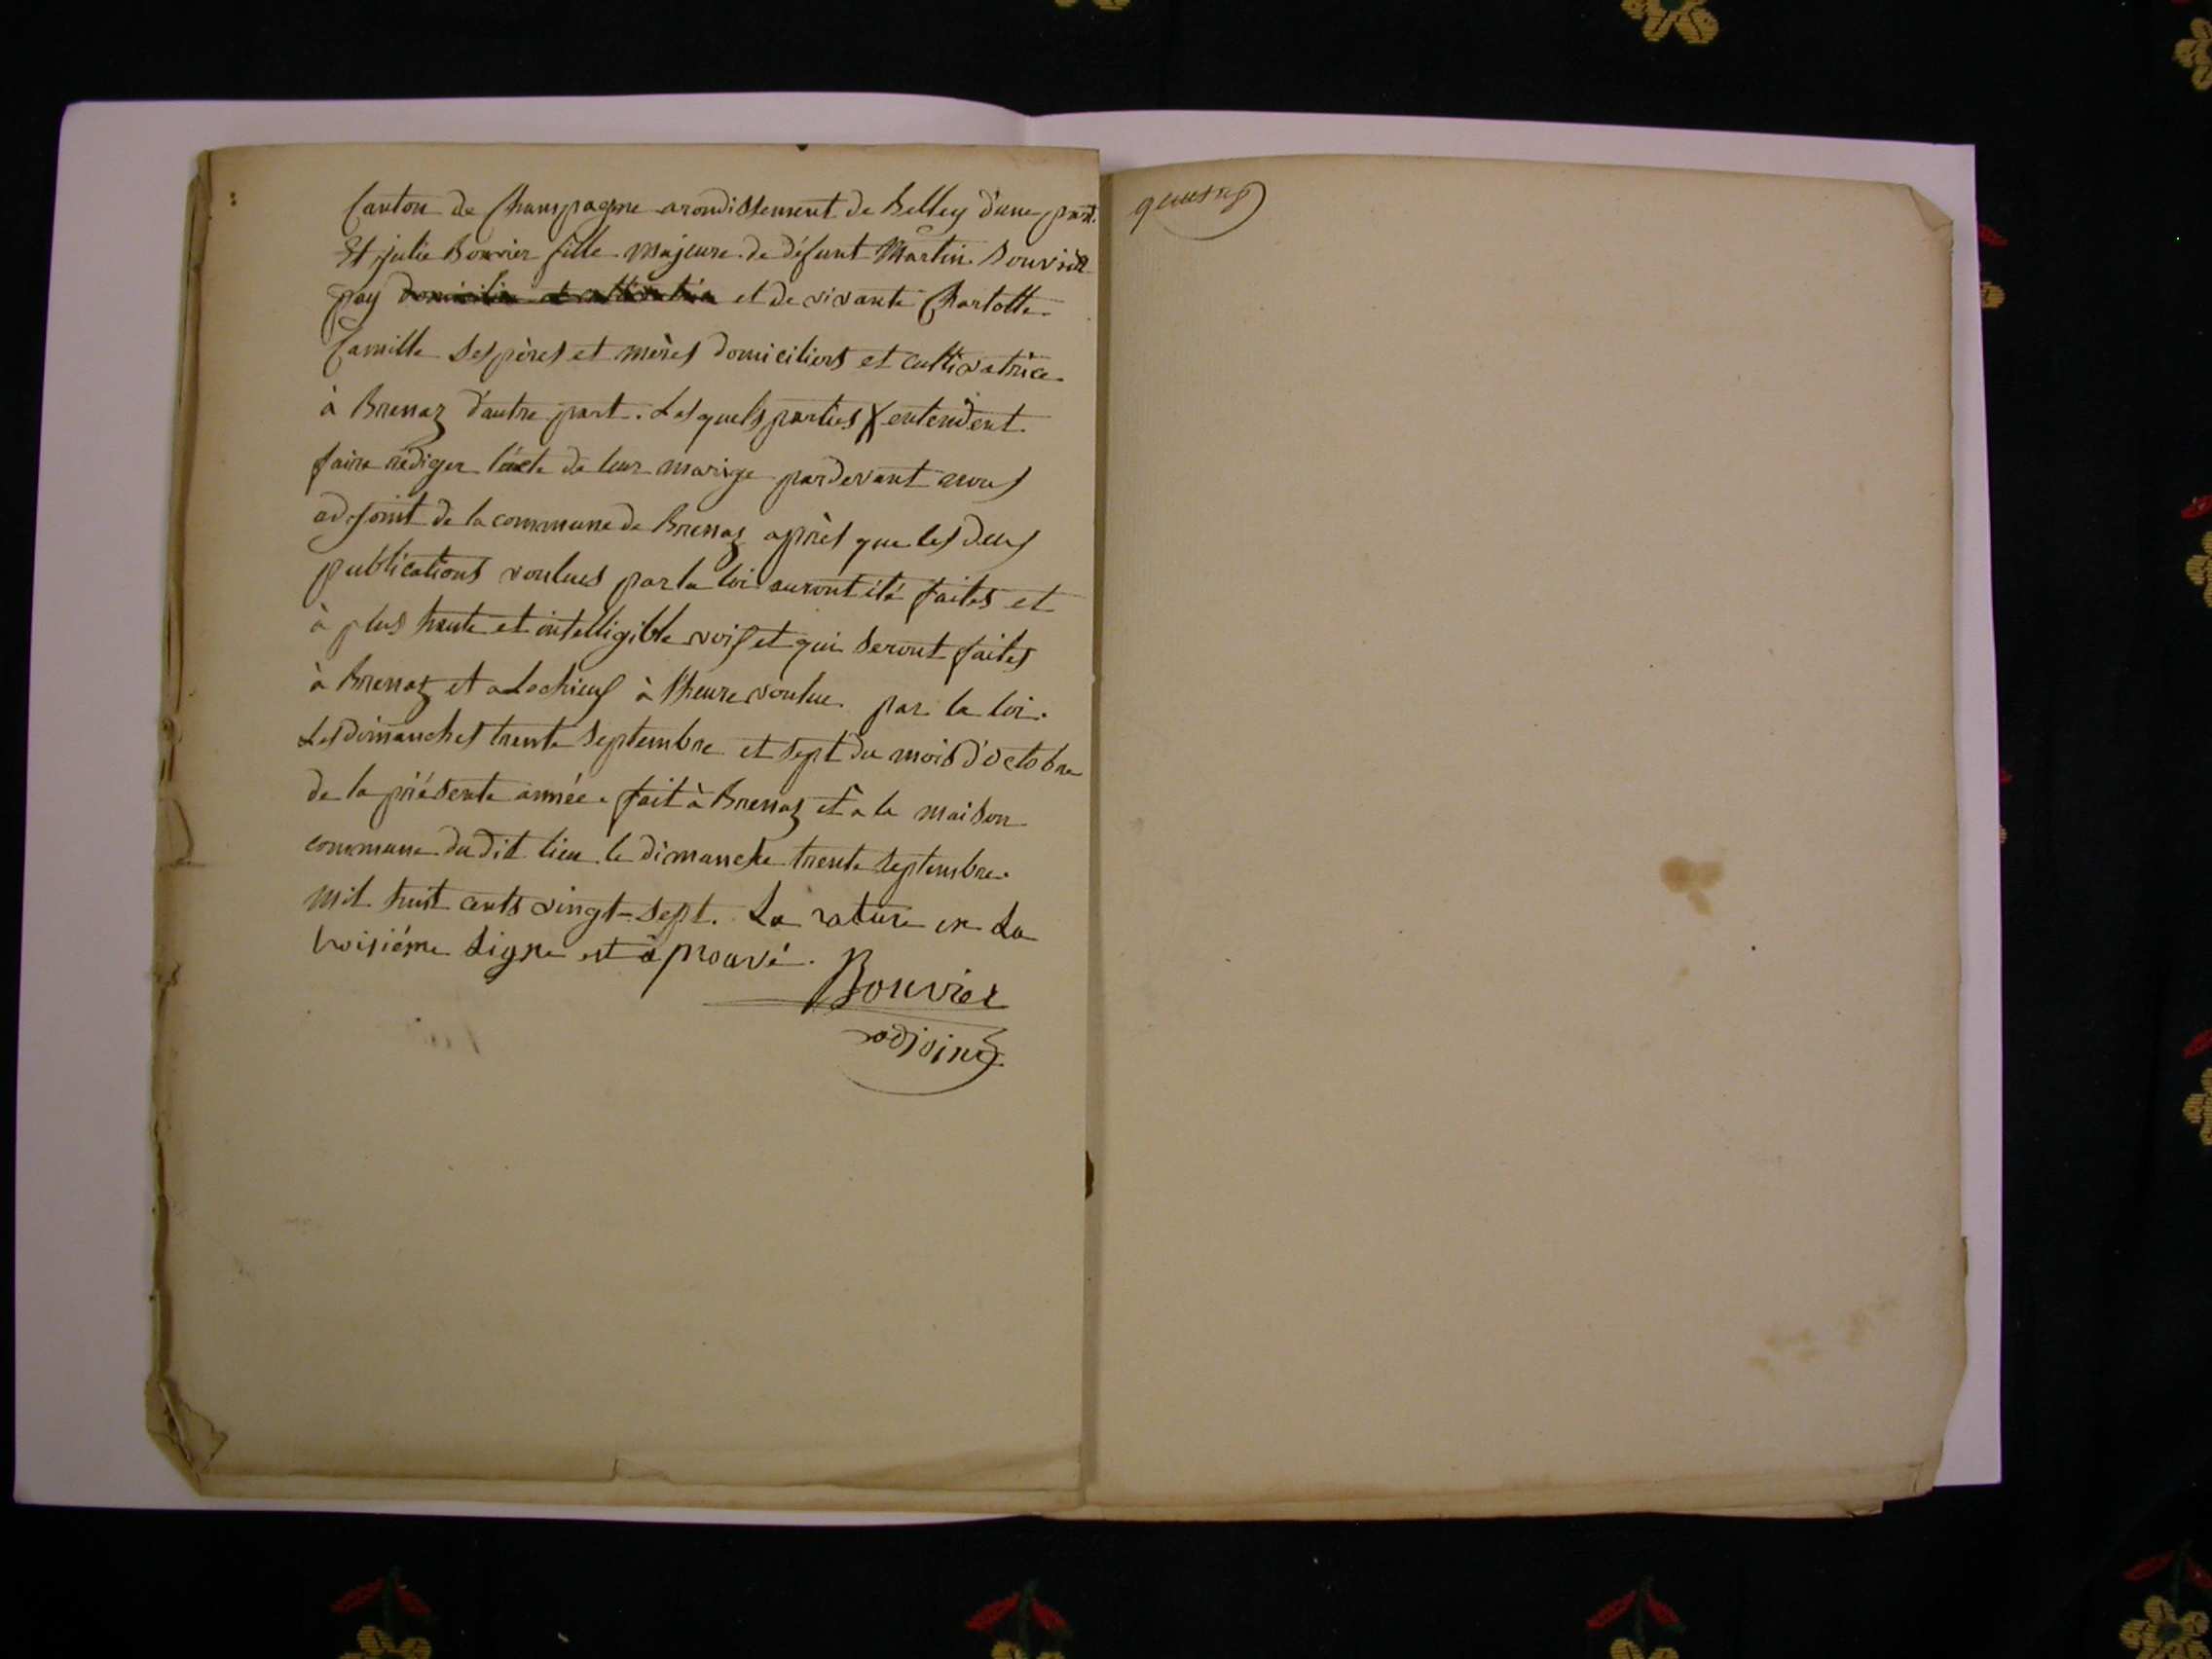 Canton de Champagne arondissement de Belley d'une part.
Et julie Bouvier fille majeure de défunt Martin Bouvier
pay domicilié et cultivatrice et de vivante Charlotte
Camille ses pères et mères domiciliers et cultivatrice
à Brenaz d'autre part. Les quels parties X entendent
faire rédiger l'acte de leur marige pardevant nous
adjoint de la commune de Brenaz après que les deux
publications voulues par la loi auront été faites et
à plus haute et intelligible voix et qui seront faites
à Brenaz et a Lochieux à l'heure voulue par la loi.
Les dimanches trente septembre et sept du mois d'octobre
de la présente année. fait à Brenaz et a la maison
commune du dit lieu le dimanche trente septembre
mil huit cents vingt-sept. La rature en La
troisiéme Ligne est aprouvé.
Bouvier
adjoint